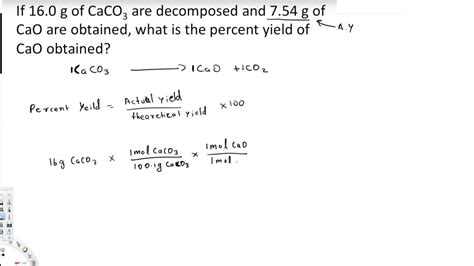 If 16.0 g of CaCO₃ are decomposed and 7.54 g of
CaO are obtained, what is the percent yield of
CaO obtained?
A.Y
1CaCO₃ → 1CaO + 1CO₂
Percent Yeild = Actual yield / theoretical yield × 100
16g CaCO₃ × 1mol CaCO₃ / 100.1g CaCO₃ × 1mol CaO / 1mol.